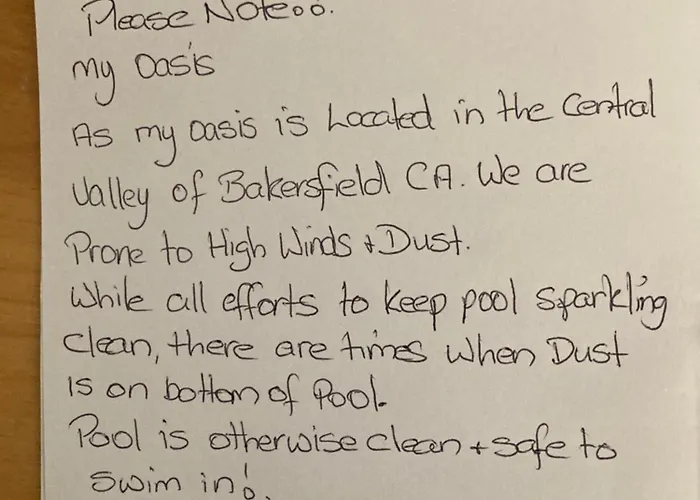 Please Note...
My Oasis
As my oasis is Located in the Central
Valley of Bakersfield CA. We are
Prone to High Winds + Dust.
While all efforts to keep pool sparkling
clean, there are times when Dust
is on bottom of Pool.
Pool is otherwise clean + safe to
swim in!